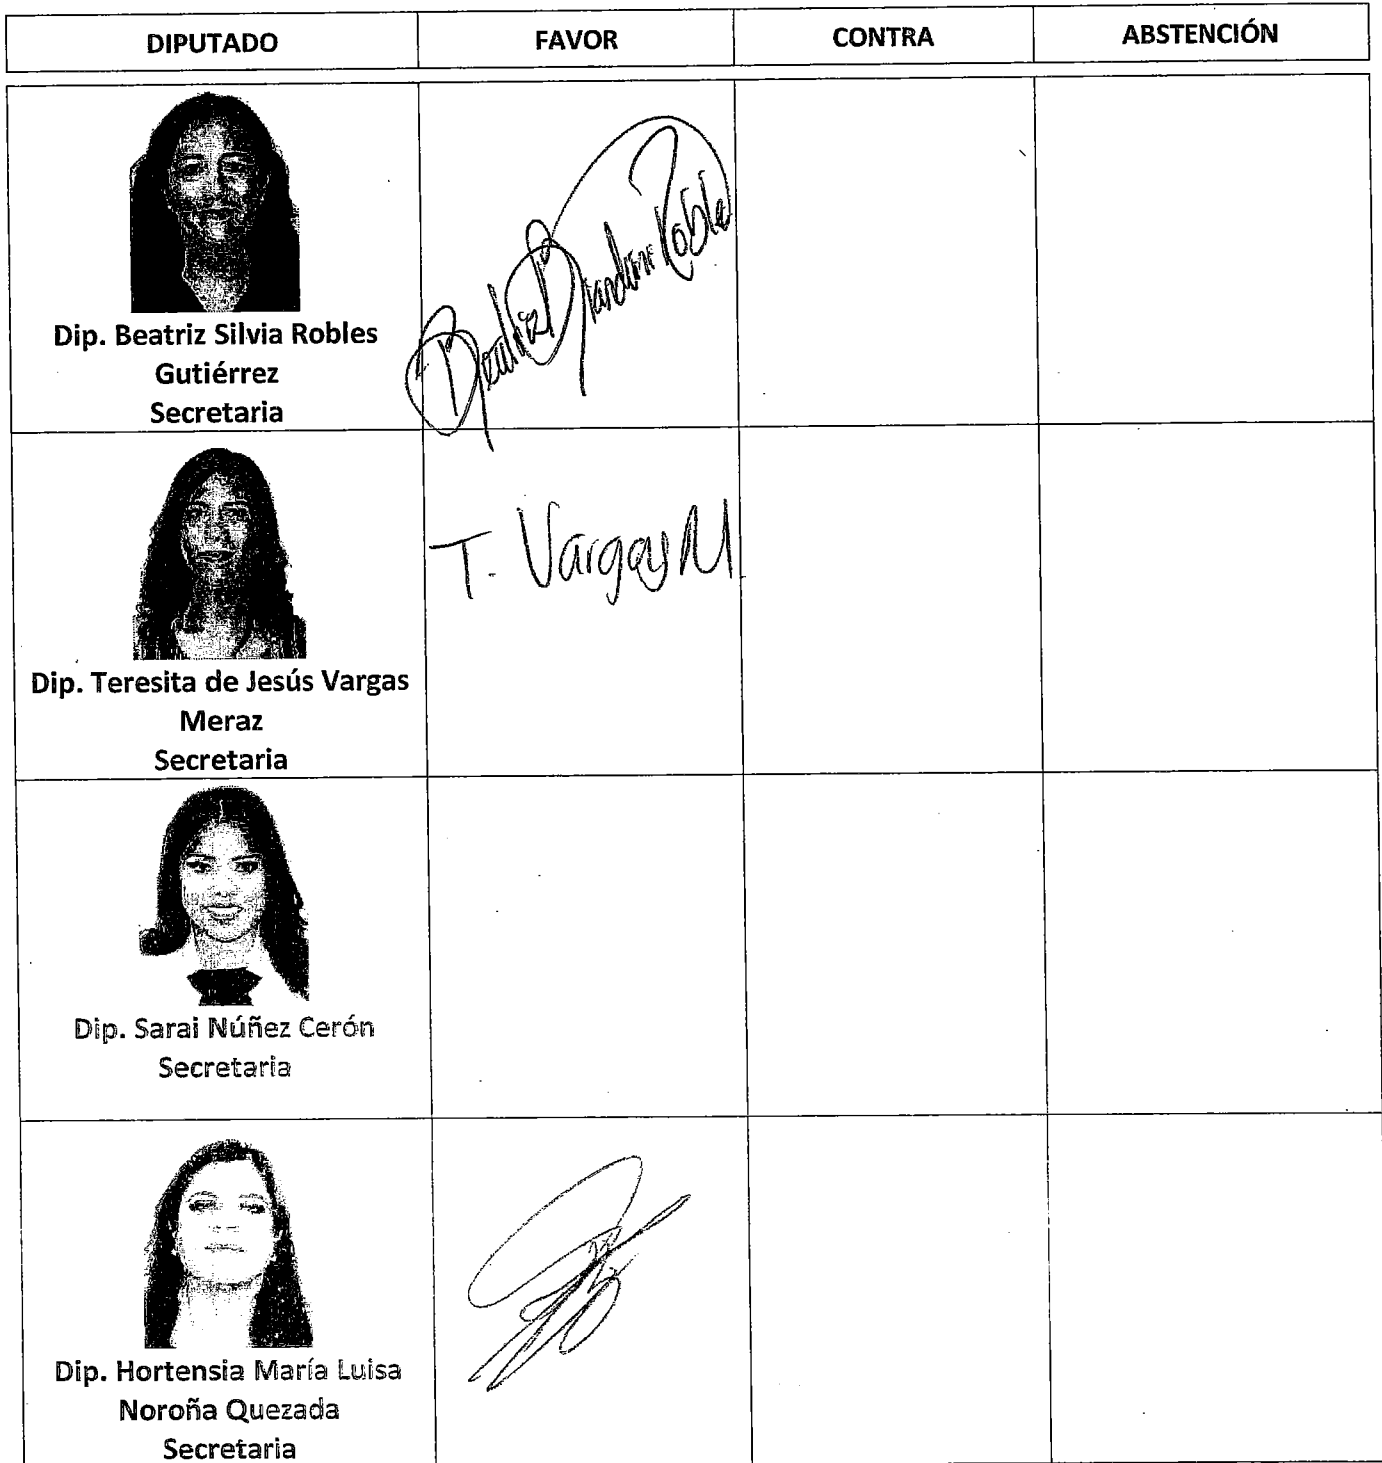 DIPUTADO FAVOR CONTRA ABSTENCIÓN
Dip. Beatriz Silvia Robles
Gutiérrez
Secretaria
T. Vargas M
Dip. Teresita de Jesús Vargas
Meraz
Secretaria
Dip. Sarai Núñez Cerón
Secretaria
Dip. Hortensia María Luisa
Noroña Quezada
Secretaria